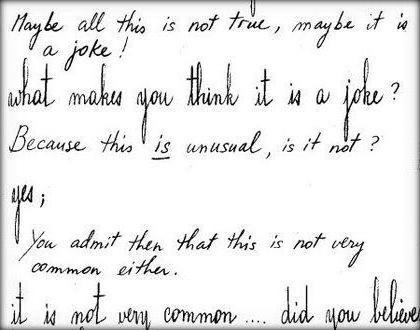 Maybe all this is not true, maybe it is
a joke!
what makes you think it is a joke?
Because this is unusual, is it not?
yes;
You admit then that this is not very
common either.
it is not very common.... did you believe